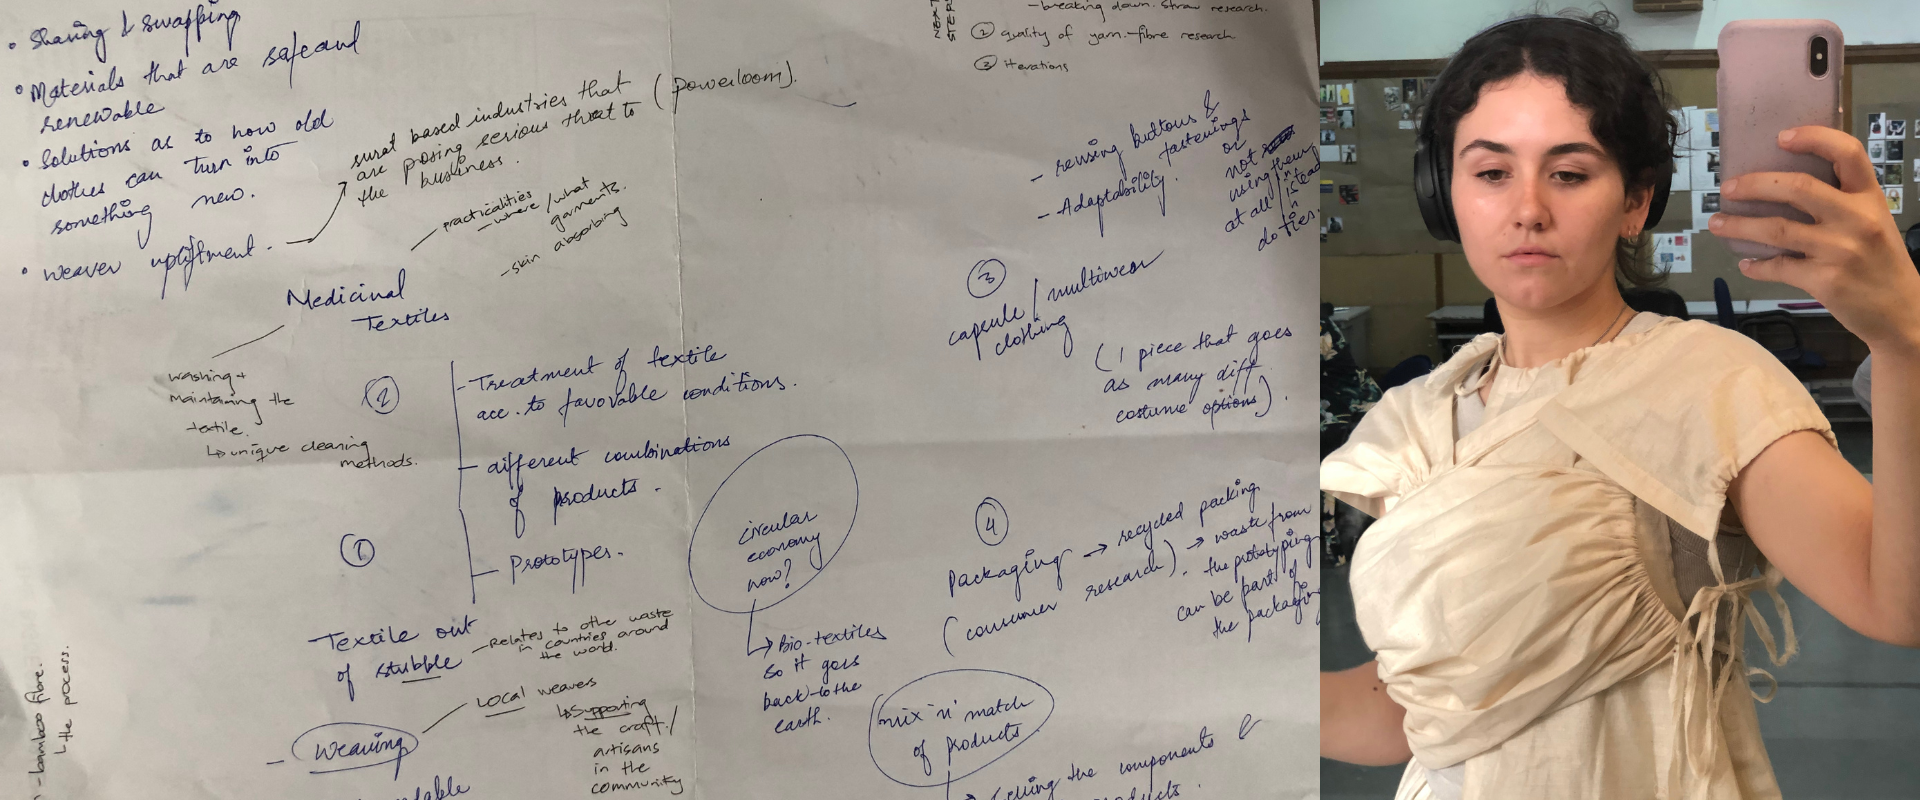 • Sharing & swapping
• Materials that are safe and
renewable
• Solutions as to how old
clothes can turn into
something new.
• weaver upliftment.
surat based industries that (powerloom).
are posing serious threat to
the business.
practicalities
- where / what
garments.
- skin absorbing
Medicinal
Textiles
washing +
maintaining the
textile.
↳ unique cleaning
methods.
②
- Treatment of textile
acc. to favorable conditions.
- different combinations
of products.
- Prototypes.
①
Textile out
of stubble
- Relates to other waste
in countries around
the world.
- weaving
Local weavers
↳ Supporting
the craft /
artisans
in the
community
- bamboo fibre.
↳ the process.
circular
economy
now?
↳ Bio-textiles
so it goes
back to the
earth.
NEXT
STEPS
- breaking down. Straw research.
② quality of yarn - fibre research
③ iterations
- reusing buttons &
fastenings
or
not
using them
at all
instead
do ties.
- Adaptability.
③
capsule / multiwear
clothing
(1 piece that goes
as many diff
costume options).
④
Packaging → recycled packing
(consumer research). → waste from
the prototyping
can be part of
the packaging
mix 'n' match
of products
the components &